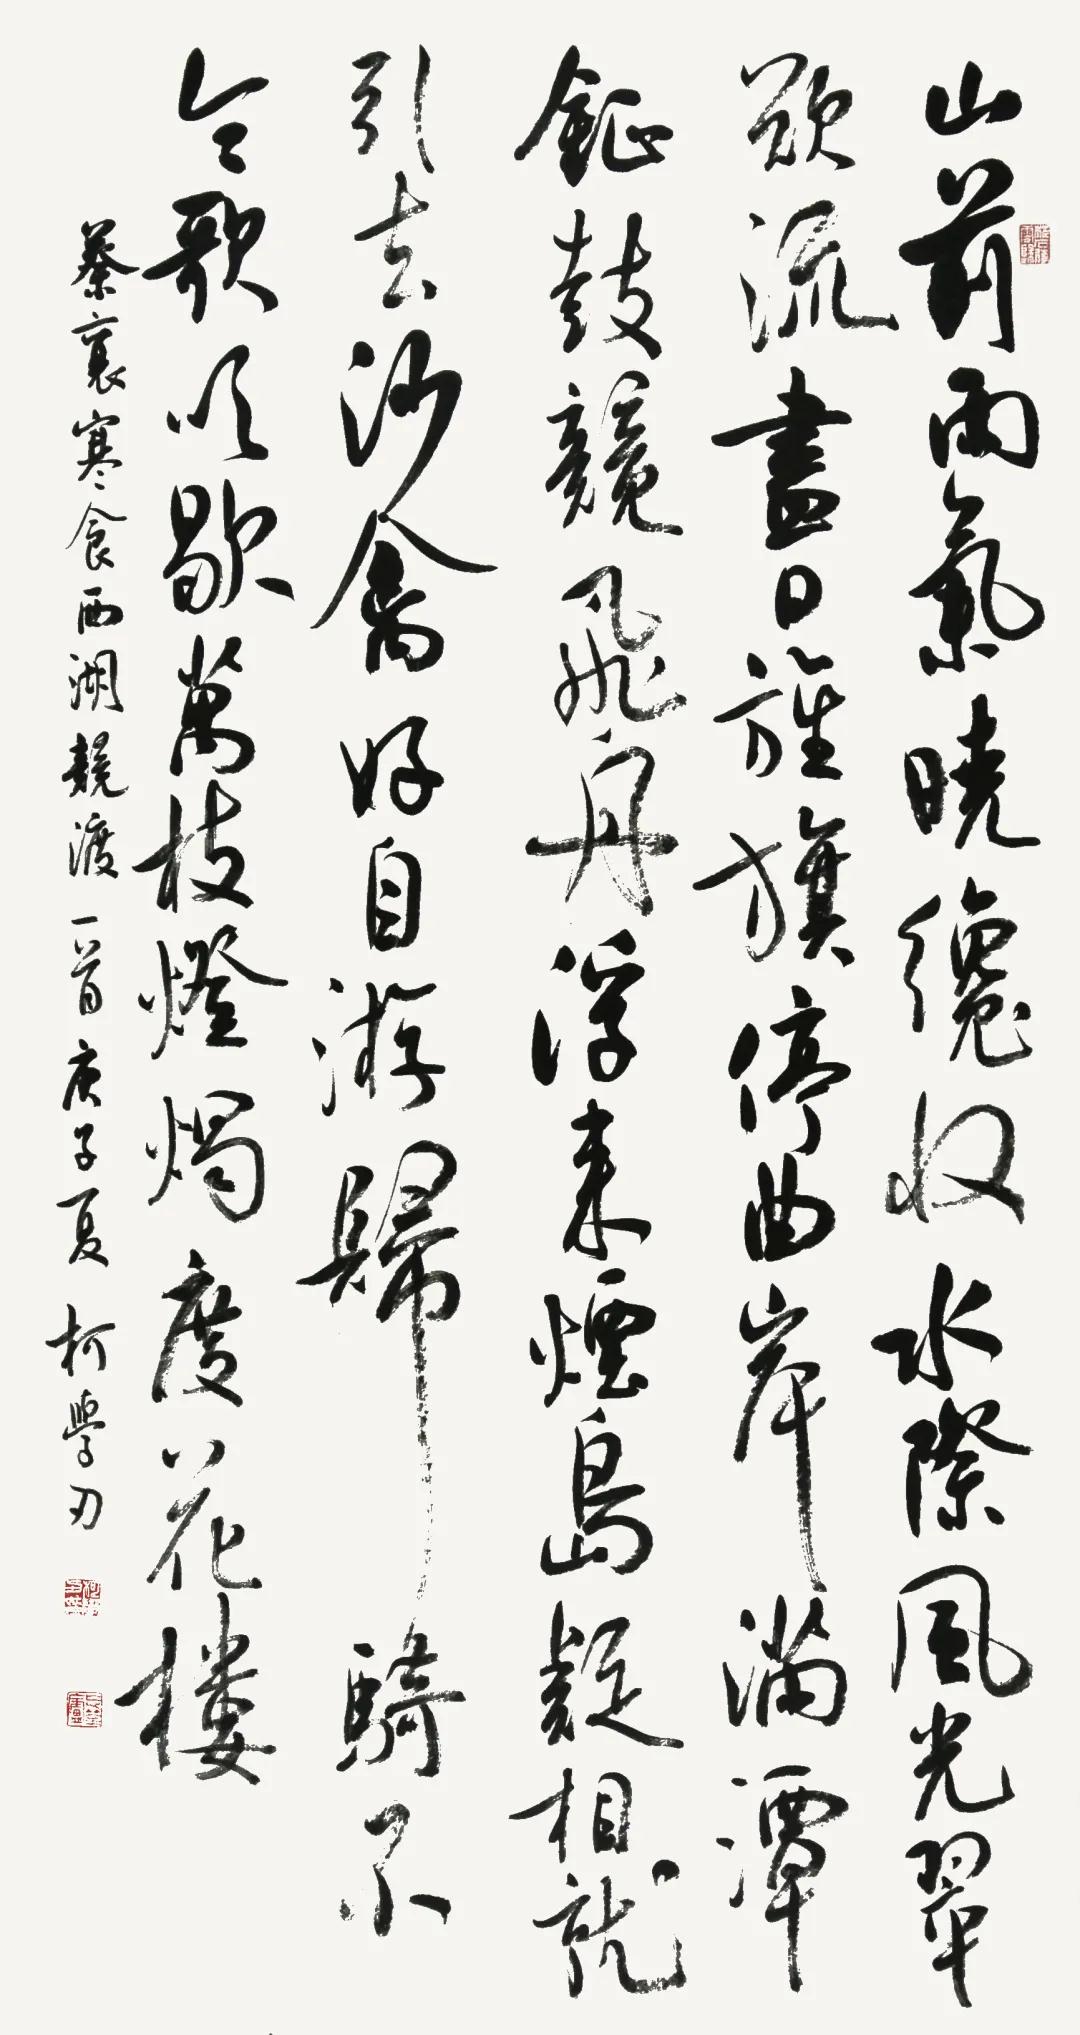 山前雨氣曉纔收水際風光翠
欲流盡日旌旗停曲岸滿潭
鉦鼓競飛舟浮來煙島疑相就
引去沙禽好自游歸騎不
令歌吹歇萬枝燈燭度花樓
蔡襄寒食西湖競渡一首庚子夏柯學刃